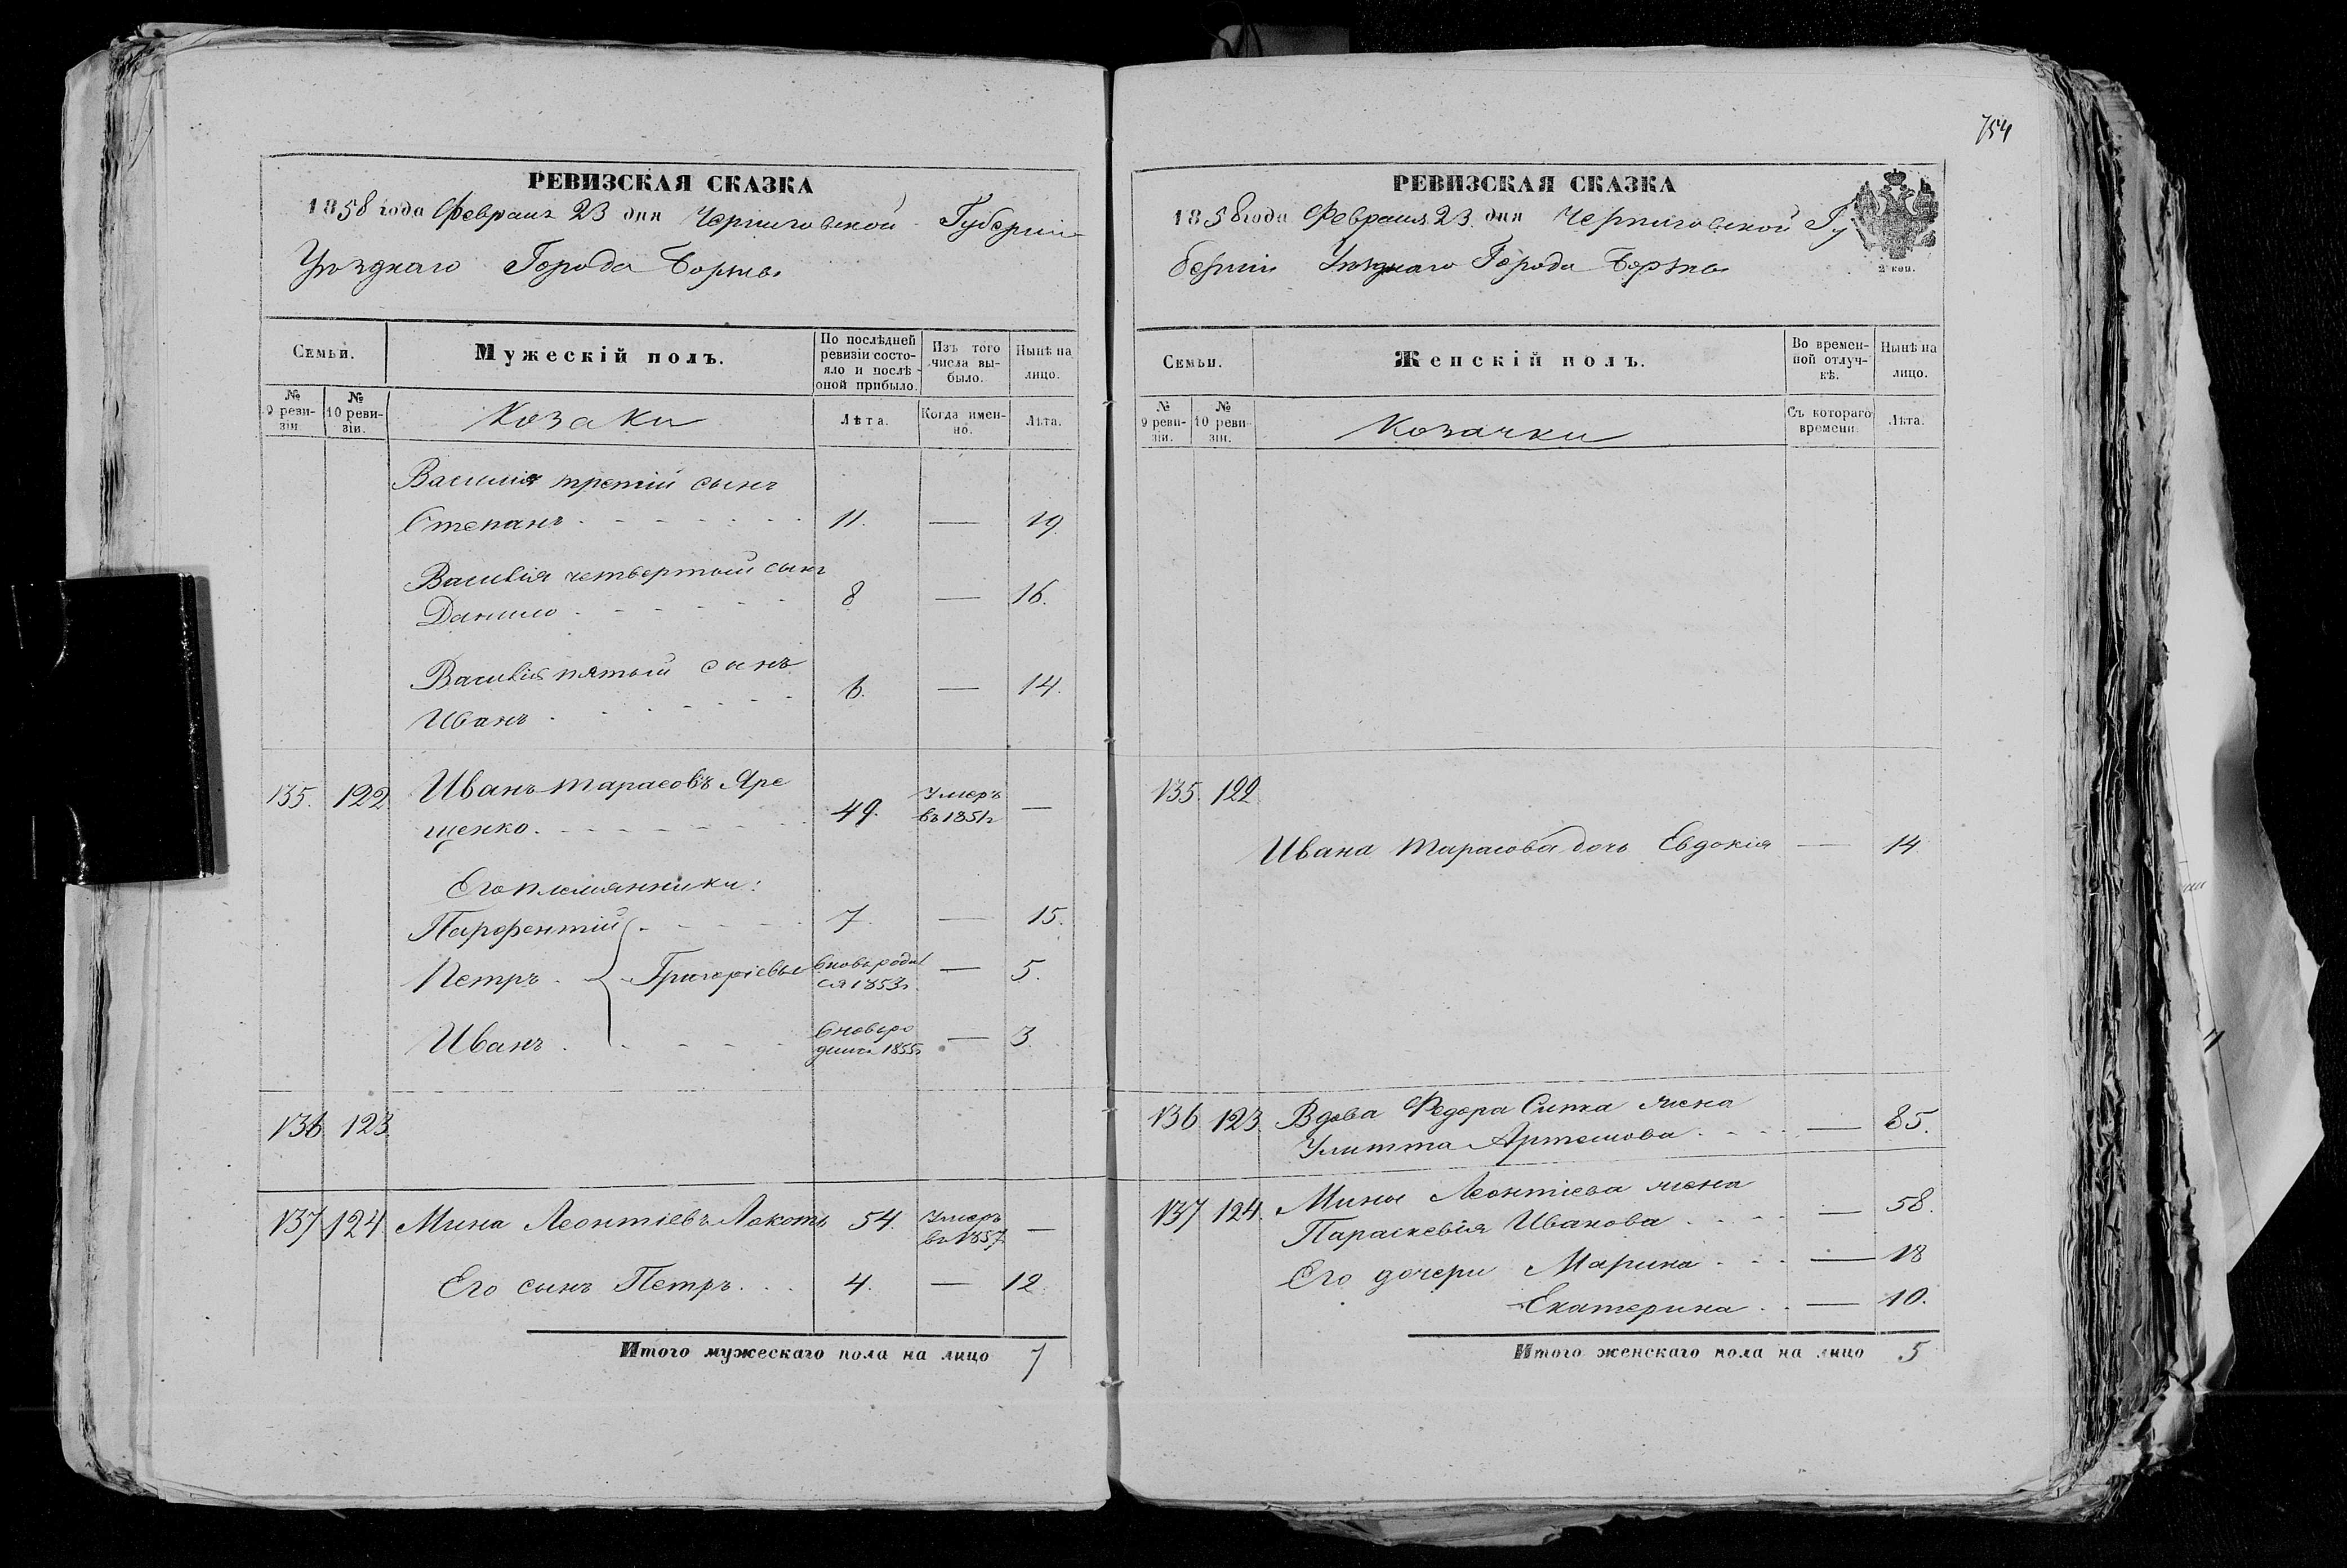 754
РЕВИЗСКАЯ СКАЗКА
1858 года Февраля 23 дня Черниговской Губернии
Уѣзднаго Города Борзны
Семьи.
Мужескій полъ.
По послѣдней ревизіи состояло и послѣ оной прибыло.
Изъ того числа выбыло.
Нынѣ на лицо.
№ 9 ревизіи
№ 10 ревизіи.
Козаки
Лѣта.
Когда именно.
Лѣта.
Василія третій сынъ
Степанъ . - - - - - - 11. — 19.
Василія четвертый сынъ
Данило . - - - - - 8 — 16.
Василія пятый сынъ
Иванъ . - - - - - 6. — 14.
135. 122 Иванъ Тарасовъ Яре
щенко. - - - - - - 49. Умеръ въ 1851г —
Его племянники:
Парфентій . - - - - 7 — 15.
Петръ . Григоріевы вновь родился 1853г — 5.
Иванъ . - - - - вновь родился 1855г — 3.
136 123.
137 124. Мина Леонтіевъ Локоть 54. Умеръ въ 1857 —
Его сынъ Петръ. . . 4. — 12.
Итого мужескаго пола на лицо 7
РЕВИЗСКАЯ СКАЗКА
1858 года Февраля 23 дня Черниговской Гу
берніи Уѣзднаго Города Борзны
2 коп.
Семьи.
Женскій полъ.
Во временной отлучкѣ.
Нынѣ на лицо.
№ 9 ревизіи.
№ 10 ревизіи.
Козачки
Съ котораго времени.
Лѣта.
135. 122
Ивана Тарасова дочь Евдокія — 14
136 123. Вдова Федора жена
Улитта Артемова . - - - — 85.
137 124. Мины Леонтіева жена
Параскевія Иванова . - - - — 58.
Его дочери Марина . - - — 18
Екатерина . . — 10.
Итого женскаго пола на лицо 5